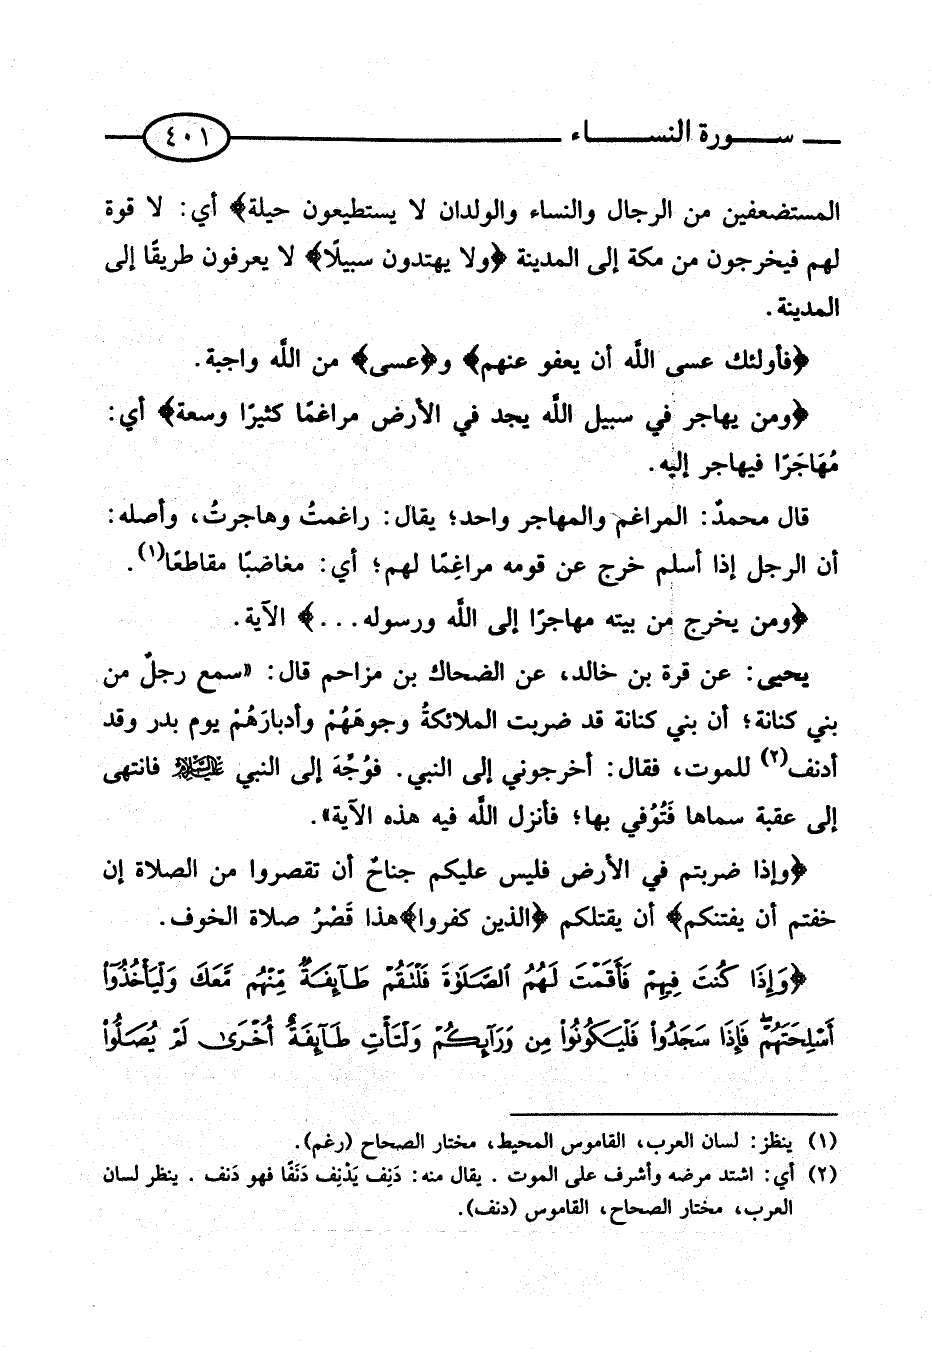 سورة النساء
٤٠١
المستضعفين من الرجال والنساء والولدان لا يستطيعون حيلة﴾ أي: لا قوة
لهم فيخرجون من مكة إلى المدينة ﴿ولا يهتدون سبيلًا﴾ لا يعرفون طريقًا إلى
المدينة.
﴿فأولئك عسى اللَّه أن يعفو عنهم﴾ و﴿عسى﴾ من اللَّه واجبة.
﴿ومن يهاجر في سبيل اللَّه يجد في الأرض مراغمًا كثيرًا وسعة﴾ أي:
مُهَاجَرًا فيهاجر إليه.
قال محمدٌ: المراغم والمهاجر واحد؛ يقال: راغمتُ وهاجرتُ، وأصله:
أن الرجل إذا أسلم خرج عن قومه مراغِمًا لهم؛ أي: مغاضبًا مقاطعًا(١).
﴿ومن يخرج من بيته مهاجرًا إلى اللَّه ورسوله...﴾ الآية.
يحيى: عن قرة بن خالد، عن الضحاك بن مزاحم قال: «سمع رجلٌ من
بني كنانة؛ أن بني كنانة قد ضربت الملائكةُ وجوهَهُمْ وأدبارَهُمْ يوم بدر وقد
أدنف(٢) للموت، فقال: أخرجوني إلى النبي. فوُجِّهَ إلى النبي عليه السلام فانتهى
إلى عقبة سماها فَتُوُفي بها؛ فأنزل اللَّه فيه هذه الآية».
﴿وإذا ضربتم في الأرض فليس عليكم جناحٌ أن تقصروا من الصلاة إن
خفتم أن يفتنكم﴾ أن يقتلكم ﴿الذين كفروا﴾هذا قَصْرُ صلاة الخوف.
﴿وَإِذَا كُنتَ فِيهِمْ فَأَقَمْتَ لَهُمُ ٱلصَّلَوٰةَ فَلْتَقُمْ طَآئِفَةٌ مِّنْهُم مَّعَكَ وَلْيَأْخُذُوٓا۟
أَسْلِحَتَهُمْۖ فَإِذَا سَجَدُوا۟ فَلْيَكُونُوا۟ مِن وَرَآئِكُمْ وَلْتَأْتِ طَآئِفَةٌ أُخْرَىٰ لَمْ يُصَلُّوا۟
(١) ينظر: لسان العرب، القاموس المحيط، مختار الصحاح (رغم).
(٢) أي: اشتد مرضه وأشرف على الموت. يقال منه: دَنِف يَدْنِف دَنَفًا فهو دَنف. ينظر لسان
العرب، مختار الصحاح، القاموس (دنف).